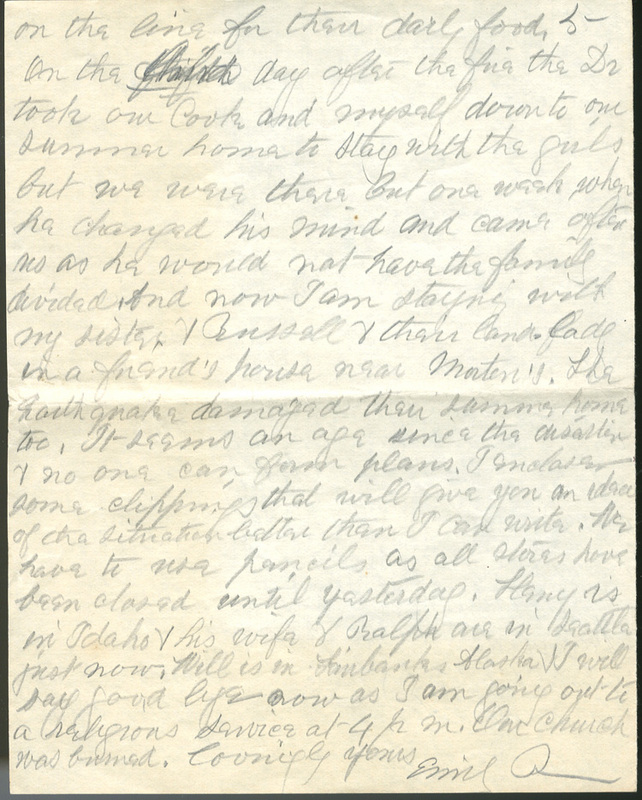 on the line for their daily food. 5-
On the day after the fire the Dr
took our Cook and myself down to our
summer home to stay with the girls
but we were there but one week when
he changed his mind and came after
us as he would not have the family
divided. And now I am staying with
my sister, & Russell & their land-lady
in a friend's house near Morten's. The
Earthquake damaged their summer home
too. It seems an age since the disaster
& no one can form plans. I enclose
some clippings that will give you an idea
of the situation better than I can write. We
have to use pencils as all stores have
been closed until yesterday. Henry is
in Idaho & his wife & Ralph are in Seattle
just now. Will is in Fairbanks Alaska & I will
say good bye now as I am going out to
a religious service at 4 p m. Our Church
was burned. Lovingly yours